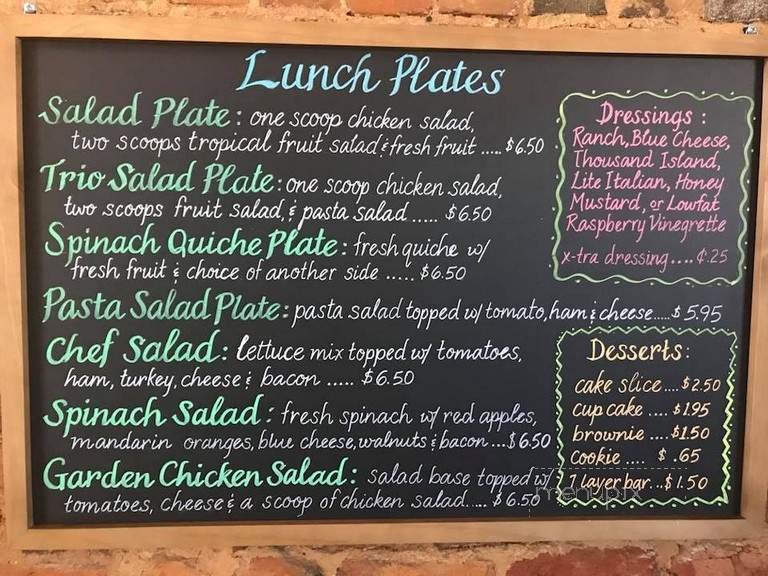 Lunch Plates
Salad Plate: one scoop chicken salad,
two scoops tropical fruit salad, & fresh fruit ..... $6.50
Trio Salad Plate: one scoop chicken salad,
two scoops fruit salad, & pasta salad ..... $6.50
Spinach Quiche Plate: fresh quiche w/
fresh fruit & choice of another side ..... $6.50
Pasta Salad Plate: pasta salad topped w/ tomato, ham & cheese ..... $5.95
Chef Salad: lettuce mix topped w/ tomatoes,
ham, turkey, cheese & bacon ..... $6.50
Spinach Salad: fresh spinach w/ red apples,
mandarin oranges, blue cheese, walnuts & bacon ... $6.50
Garden Chicken Salad: salad base topped w/
tomatoes, cheese & a scoop of chicken salad ..... $6.50
Dressings:
Ranch, Blue Cheese,
Thousand Island,
Lite Italian, Honey
Mustard, or Lowfat
Raspberry Vinegrette
x-tra dressing .... ¢.25
Desserts:
cake slice .... $2.50
cup cake .... $1.95
brownie .... $1.50
cookie .... $ .65
7 layer bar ... $1.50
menupix